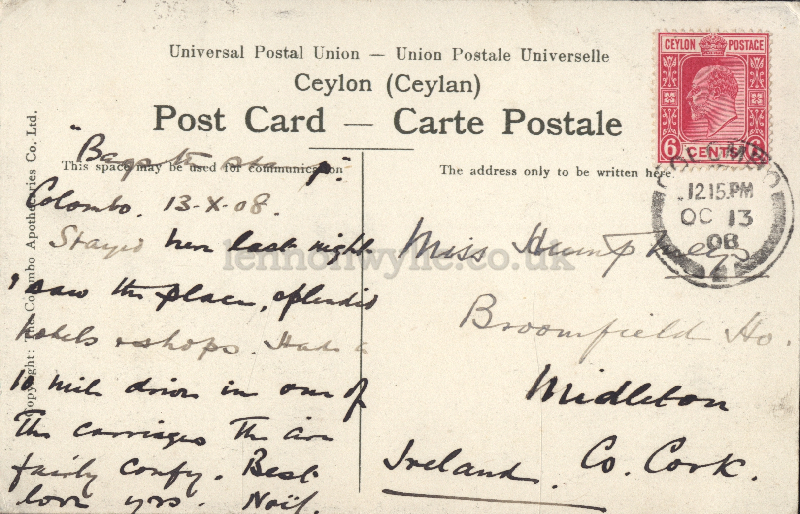 Universal Postal Union — Union Postale Universelle
Ceylon (Ceylan)
Post Card — Carte Postale
This space may be used for communication
The address only to be written here.
CEYLON POSTAGE
6 CENTS 6
COLOMBO
12.15.PM
OC 13
08
Colombo. 13-X-08.
Stayed here last night
& saw the place, splendid
hotels & shops. Had a
10 mile drive in one of
The carriages The are
fairly comfy. Best
love yrs. Noël.
Miss Humphreys
Broomfield Ho.
Midleton
Co. Cork.
Ireland.
Copyright: The Colombo Apothecaries Co. Ltd.
lennonwylie.co.uk